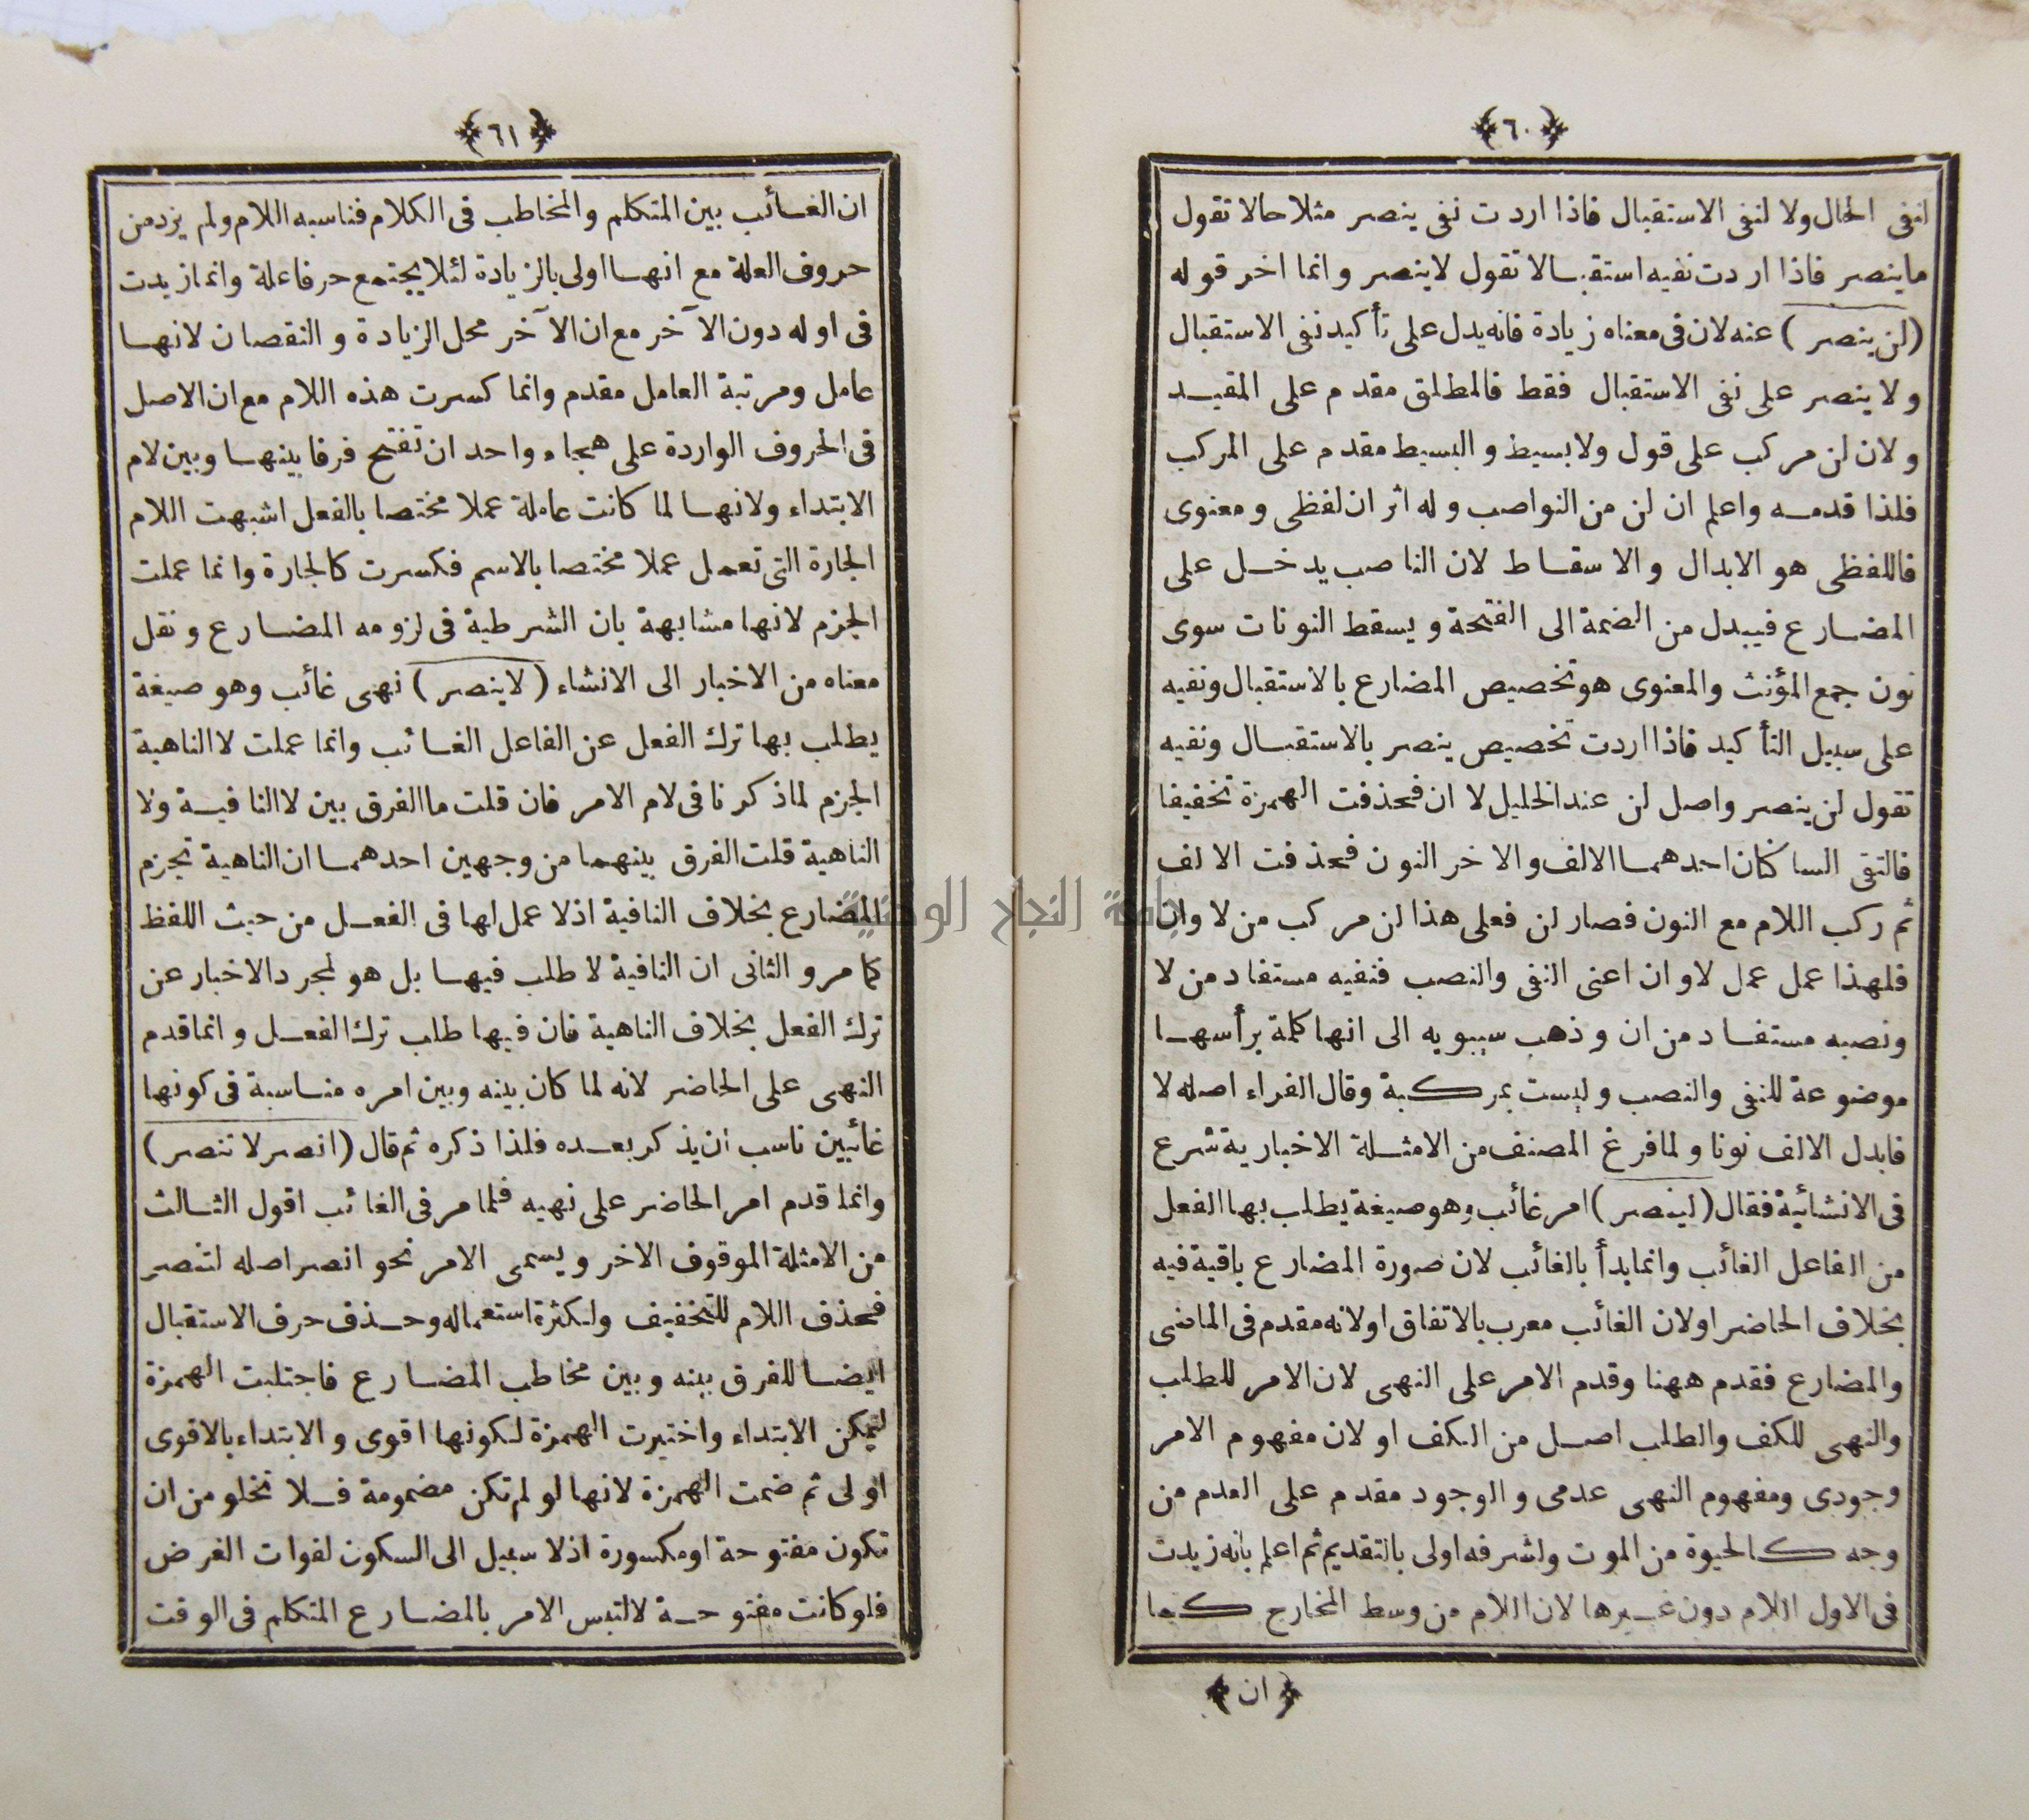 ﴿٦٠﴾
لنفى الحال ولا لنفى الاستقبال فاذا اردت نفى ينصر مثلا حالا تقول
ما ينصر فاذا اردت نفيه استقبالا تقول لا ينصر وانما اخر قوله
(لن ينصر) عنه لان فى معناه زيادة فانه يدل على تأكيد نفى الاستقبال
ولا ينصر على نفى الاستقبال فقط فالمطلق مقدم على المقيد
ولان لن مركب على قول ولا بسيط والبسيط مقدم على المركب
فلذا قدمه واعلم ان لن من النواصب وله اثران لفظى ومعنوى
فاللفظى هو الابدال والاسقاط لان الناصب يدخل على
المضارع فيبدل من الضمة الى الفتحة ويسقط النونات سوى
نون جمع المؤنث والمعنوى هو تخصيص المضارع بالاستقبال ونفيه
على سبيل التأكيد فاذا اردت تخصيص ينصر بالاستقبال ونفيه
تقول لن ينصر واصل لن عند الخليل لا ان فحذفت الهمزة تخفيفا
فالتقى الساكنان احدهما الالف والاخر النون فحذفت الالف
ثم ركب اللام مع النون فصار لن فعلى هذا لن مركب من لا وان
فلهذا عمل عمل لا وان اعنى النفى والنصب فنفيه مستفاد من لا
ونصبه مستفاد من ان وذهب سيبويه الى انها كلمة برأسها
موضوعة للنفى والنصب وليست بمركبة وقال الفراء اصله لا
فابدل الالف نونا ولما فرغ المصنف من الامثلة الاخبارية شرع
فى الانشائية فقال (لينصر) امر غائب وهو صيغة يطلب بها الفعل
من الفاعل الغائب وانما بدأ بالغائب لان صورة المضارع باقية فيه
بخلاف الحاضر اولان الغائب معرب بالاتفاق اولانه مقدم فى الماضى
والمضارع فقدم ههنا وقدم الامر على النهى لان الامر للطلب
والنهى للكف والطلب اصل من الكف اولان مفهوم الامر
وجودى ومفهوم النهى عدمى والوجود مقدم على العدم من
وجه كالحيوة من الموت ولشرفه اولى بالتقديم ثم اعلم بانه زيدت
فى الاول اللام دون غيرها لان اللام من وسط المخارج كما
﴿ان﴾
﴿٦١﴾
ان الغائب بين المتكلم والمخاطب فى الكلام فناسبه اللام ولم يزد من
حروف العلة مع انها اولى بالزيادة لئلا يجتمع حرفا علة وانما زيدت
فى اوله دون الآخر مع ان الآخر محل الزيادة والنقصان لانها
عامل ومرتبة العامل مقدم وانما كسرت هذه اللام مع ان الاصل
فى الحروف الواردة على هجاء واحد ان تفتح فرقا بينها وبين لام
الابتداء ولانها لما كانت عاملة عملا مختصا بالفعل اشبهت اللام
الجارة التى تعمل عملا مختصا بالاسم فكسرت كالجارة وانما عملت
الجزم لانها مشابهة بان الشرطية فى لزومه المضارع ونقل
معناه من الاخبار الى الانشاء (لا ينصر) نهى غائب وهو صيغة
يطلب بها ترك الفعل عن الفاعل الغائب وانما عملت لا الناهية
الجزم لما ذكرنا فى لام الامر فان قلت ما الفرق بين لا النافية ولا
الناهية قلت الفرق بينهما من وجهين احدهما ان الناهية تجزم
المضارع بخلاف النافية اذ لا عمل لها فى الفعل من حيث اللفظ
كما مر والثانى ان النافية لا طلب فيها بل هو لمجرد الاخبار عن
ترك الفعل بخلاف الناهية فان فيها طلب ترك الفعل وانما قدم
النهى على الحاضر لانه لما كان بينه وبين امره مناسبة فى كونها
غائبين ناسب ان يذكر بعده فلذا ذكره ثم قال (انصر لا تنصر)
وانما قدم امر الحاضر على نهيه فلما مر فى الغائب اقول الثالث
من الامثلة الموقوف الاخر ويسمى الامر نحو انصر اصله لتنصر
فحذف اللام للتخفيف ولكثرة استعماله وحذف حرف الاستقبال
ايضا للفرق بينه وبين مخاطب المضارع فاجتلبت الهمزة
ليمكن الابتداء واختيرت الهمزة لكونها اقوى والابتداء بالاقوى
اولى ثم ضمت الهمزة لانها لو لم تكن مضمومة فلا تخلو من ان
تكون مفتوحة او مكسورة اذ لا سبيل الى السكون لفوات الغرض
فلو كانت مفتوحة لالتبس الامر بالمضارع المتكلم فى الوقت
جامعة النجاح الوطنية